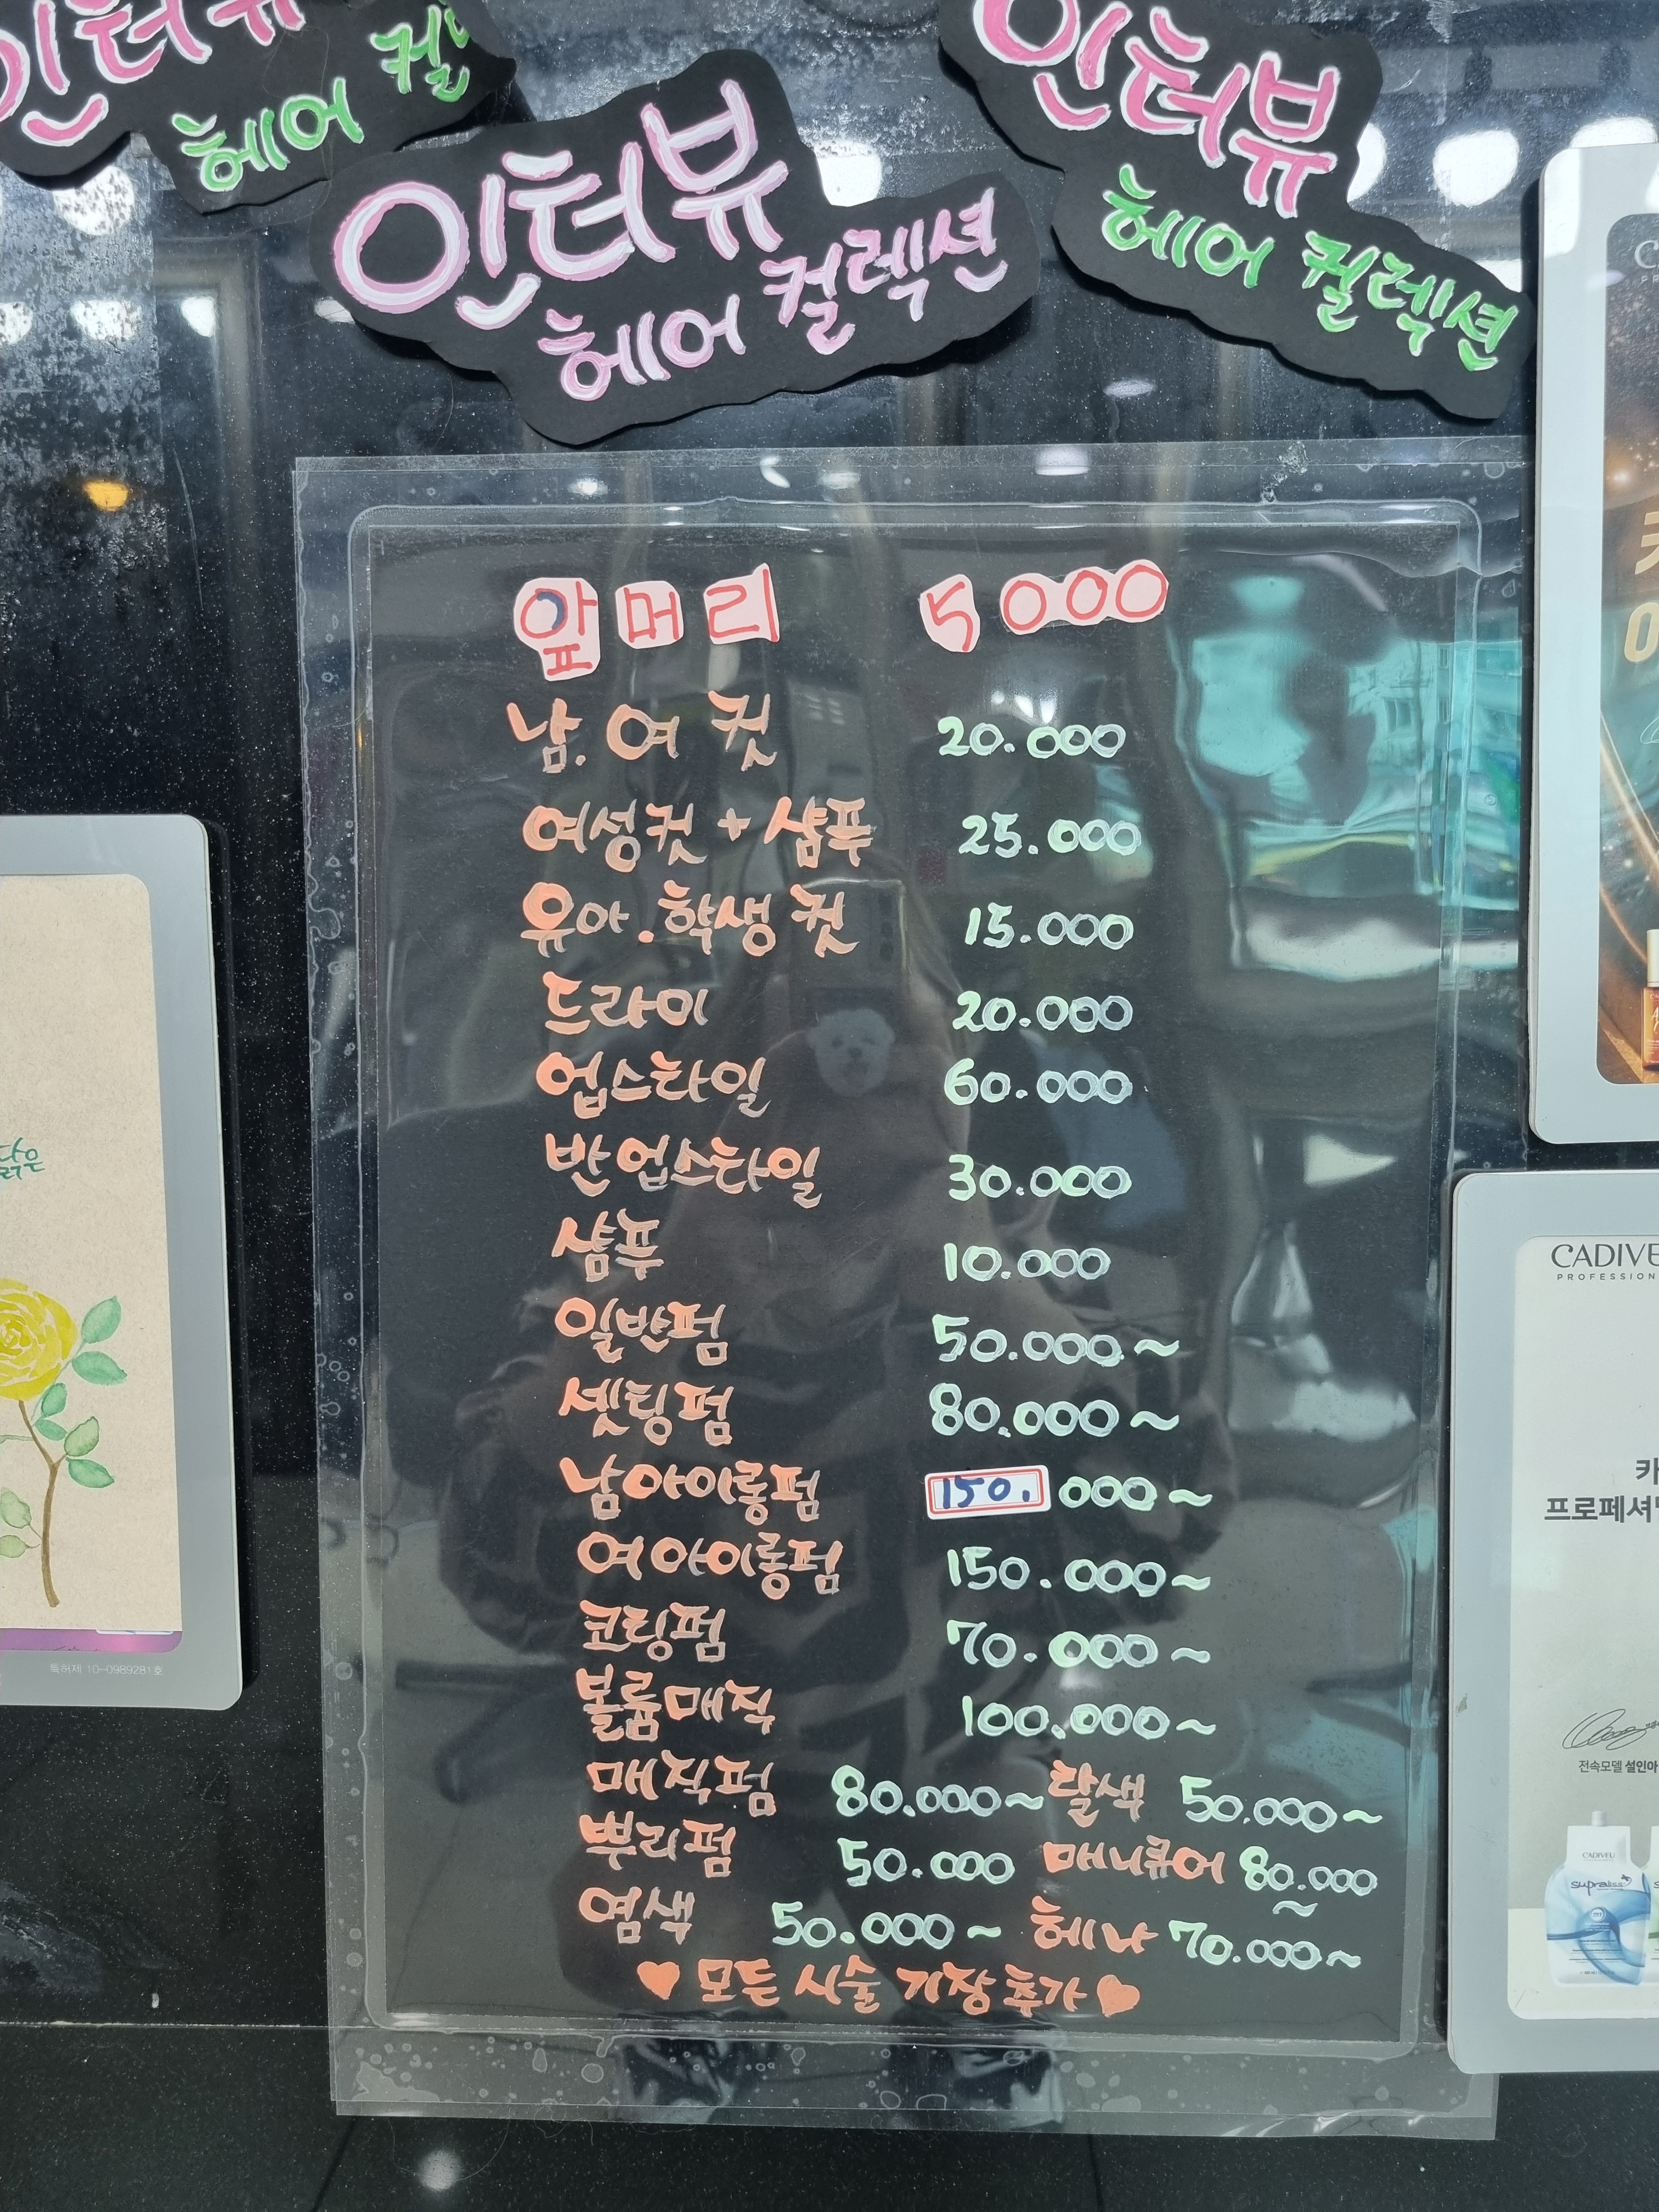 인터뷰
헤어 컬
인터뷰
헤어 컬렉션
인터뷰
헤어 컬렉션
앞머리 5000
남.여 컷 20.000
여성컷 + 샴푸 25.000
유아.학생 컷 15.000
드라이 20.000
업스타일 60.000
반업스타일 30.000
샴푸 10.000
일반펌 50.000~
셋팅펌 80.000~
남아이롱펌 150.000~
여아이롱펌 150.000~
코링펌 70.000~
볼륨매직 100.000~
매직펌 80.000~ 탈색 50.000~
뿌리펌 50.000 매니큐어 80.000~
염색 50.000~ 헤나 70.000~
♥ 모든 시술 기장 추가 ♥
특허제 10-0989281호
CADIVE
PROFESSION
카
프로페셔
전속모델 설인아
CADIVEU
supraliss